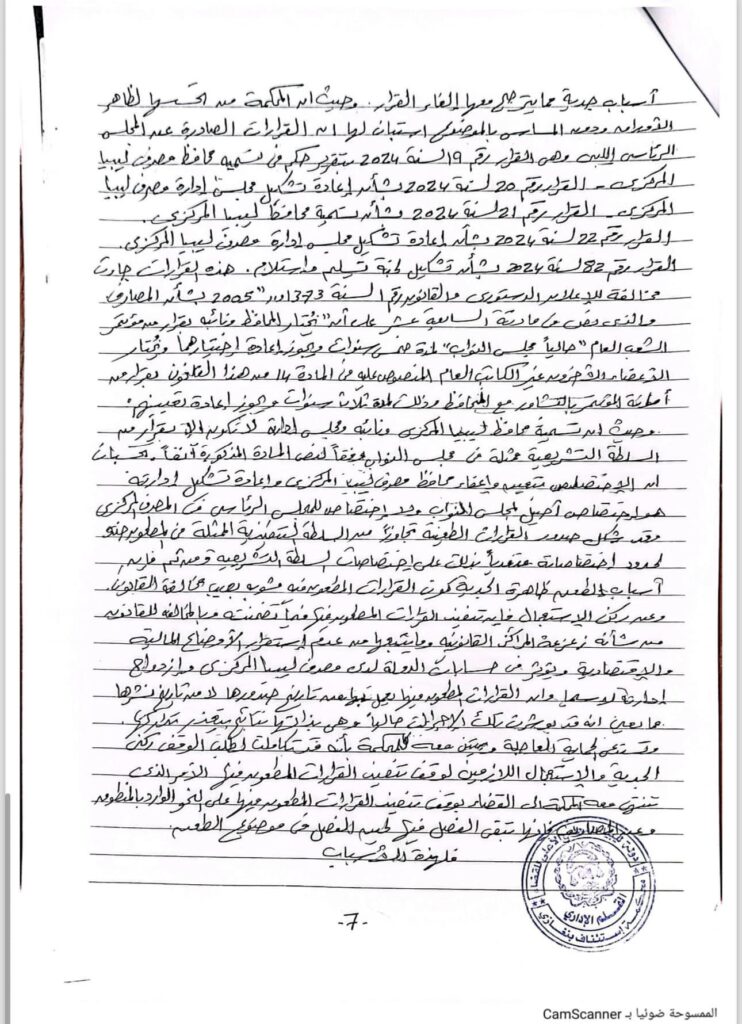 أسباب جدية مما يترجح معها إلغاء القرار. وحيث ان المحكمة من تحسسها لظاهر
الأوراق ودون المساس بالموضوع استبان لها ان القرارات الصادرة عن المجلس
الرئاسي الليبي وهى القرار رقم 19 لسنة 2024 بتقرير حكم في تسمية محافظ مصرف ليبيا
المركزي - القرار رقم 20 لسنة 2024 بشأن إعادة تشكيل مجلس إدارة مصرف ليبيا
المركزي - القرار رقم 21 لسنة 2024 بشأن تسمية محافظ ليبيا المركزي.
القرار رقم 22 لسنة 2024 بشأن اعادة تشكيل مجلس إدارة مصرف ليبيا المركزي.
القرار رقم 82 لسنة 2024 بشأن تشكيل لجنة تسليم واستلام. هذه القرارات جاءت
مخالفة للإعلان الدستوري والقانون رقم 1 لسنة 1373 و.ر "2005" بشأن المصارف
والذي نص في مادته السابعة عشر على أن "يختار المحافظ ونائبه بقرار من مؤتمر
الشعب العام "حالياً مجلس النواب" لمدة خمس سنوات ويجوز إعادة اختيارهما ويختار
الأعضاء الآخرون غير الكاتب العام المنصوص عليه في المادة 14 من هذا القانون بقرار من
أمانة المؤتمر بالتشاور مع المحافظ وذلك لمدة ثلاث سنوات ويجوز إعادة تعيينهم.
وحيث ان تسمية محافظ ليبيا المركزي ونائبه ومجلس إدارته لا تكون إلا بقرار من
السلطة التشريعية ممثلة في مجلس النواب وفقاً لنص المادة المذكورة آنفاً بحسبان
ان الإختصاص بتعيين وإعفاء محافظ مصرف ليبيا المركزي وإعادة تشكيل إدارته
هو اختصاص أصيل لمجلس النواب ولا إختصاص للمجلس الرئاسي في المصرف المركزي
وقد شكل صدور القرارات الطعينة تجاوزاً من السلطة التنفيذية الممثلة في المطعون ضده
لحدود اختصاصاته متعدياً بذلك على إختصاصات السلطة التشريعية ومن ثم فإن
أسباب الطعن ظاهرة الجدية كون القرارات المطعون فيه مشوبه بعيب مخالفة القانون.
وعن ركن الإستعجال فإن تنفيذ القرارات المطعون فيها فيما تضمنته وبالمخالفة للقانون
من شأنه زعزعة المراكز القانونية وما يتبعها من عدم إستقرار الأوضاع المالية
والإقتصادية ويؤثر في حسابات الدولة لدى مصرف ليبيا المركزي وإزدواج
إدارته لا سيما وان القرارات المطعون فيها يعمل بها من تاريخ صدورها لا من تاريخ نشرها
مما يعني انه قد بوشرت تلك الإجراءات حالياً وهي بذاتها نتائج يتعذر تداركها.
وتستدعى الحماية العاجلة ويبين معه للمحكمة بأنه قد تكاملت لطلب الوقف ركني
الجدية والاستعجال اللازمين لوقف تنفيذ القرارات المطعون فيها الأمر الذي
تنتهي معه المحكمة الى القضاء بوقف تنفيذ القرارات المطعون فيها على النحو الوارد بالمنطوق
وعن المصاريف فإنها تبقى الفصل فيها لحين الفصل في موضوع الطعن.
فلهذه الأسباب
المجلس الأعلى للقضاء
القسم الإداري
محكمة إستئناف بنغازي
-7-
الممسوحة ضوئيا بـ CamScanner